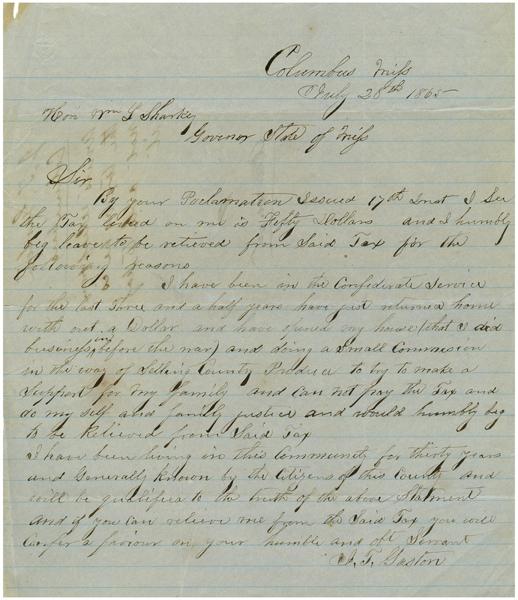 Columbus Miss
July 28th 1865
Hon Wm L Sharkey
Govenor State of Miss
Sir
By your Proclamation Issued 17th Inst I See
the Tax levied on me is Fifty Dollars and I humbly
beg leave to be relieved from Said Tax for the
following reasons
I have been in the Confederate Service
for the last Three and a half years have just returned home
with out a Dollar and have opened my house (that I did
business in before the war) and doing a Small Commission
in the way of Selling County Produce to try to make a
Support for my family and can not pay the Tax and
do my self and family justice and would humbly beg
to be Relieved from Said Tax
I have been living in this Community for thirty years
and Generally known by the Citizens of this County and
will be qualified to the truth of the above Statment
and if you can relieve me from the Said Tax you will
Confer a faviour on your humble and obt Servant
J. F. Gaston